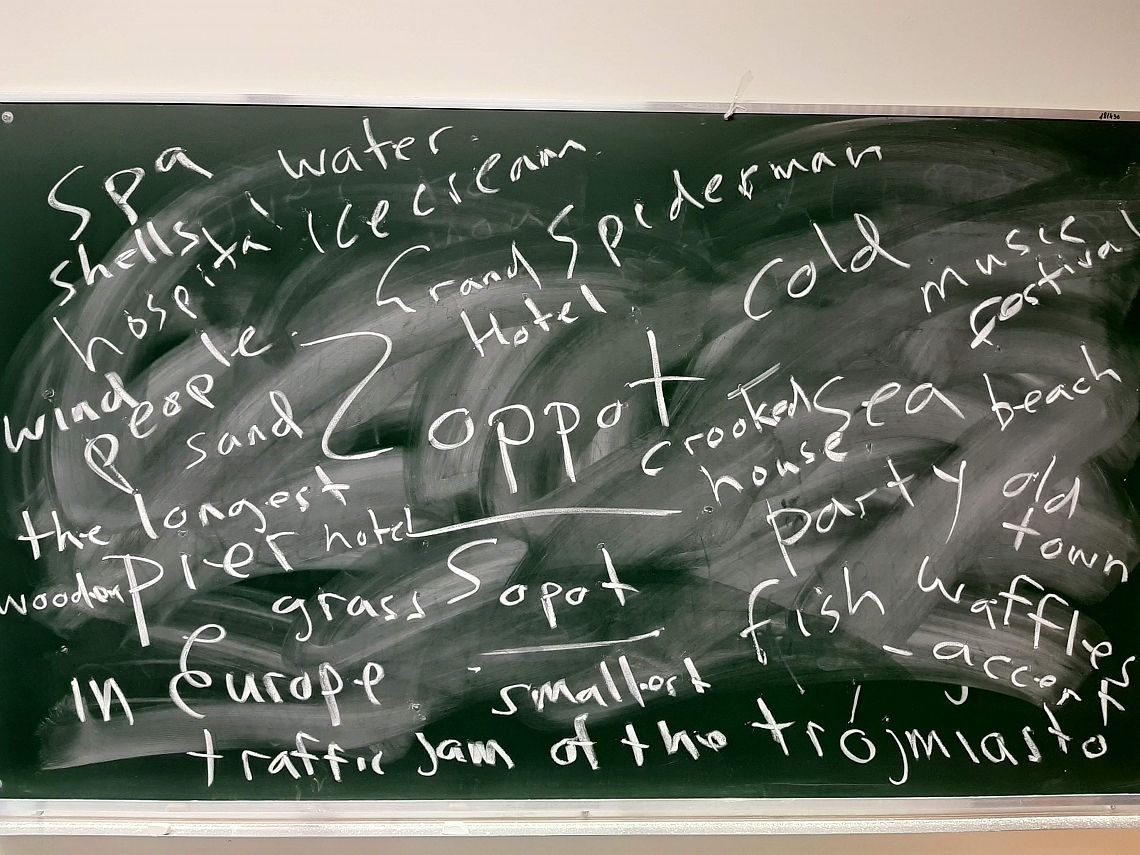 Spa water
shells ice cream
hospital
Grand Spiderman
Hotel
cold
music
festival
wind
people
sand
Zoppot
crooked
house
sea
beach
the longest
wooden pier
hotel
party
old
town
grass
Sopot
fish
waffles
- accent
in Europe
smallest
traffic jam of the trójmiasto
181430